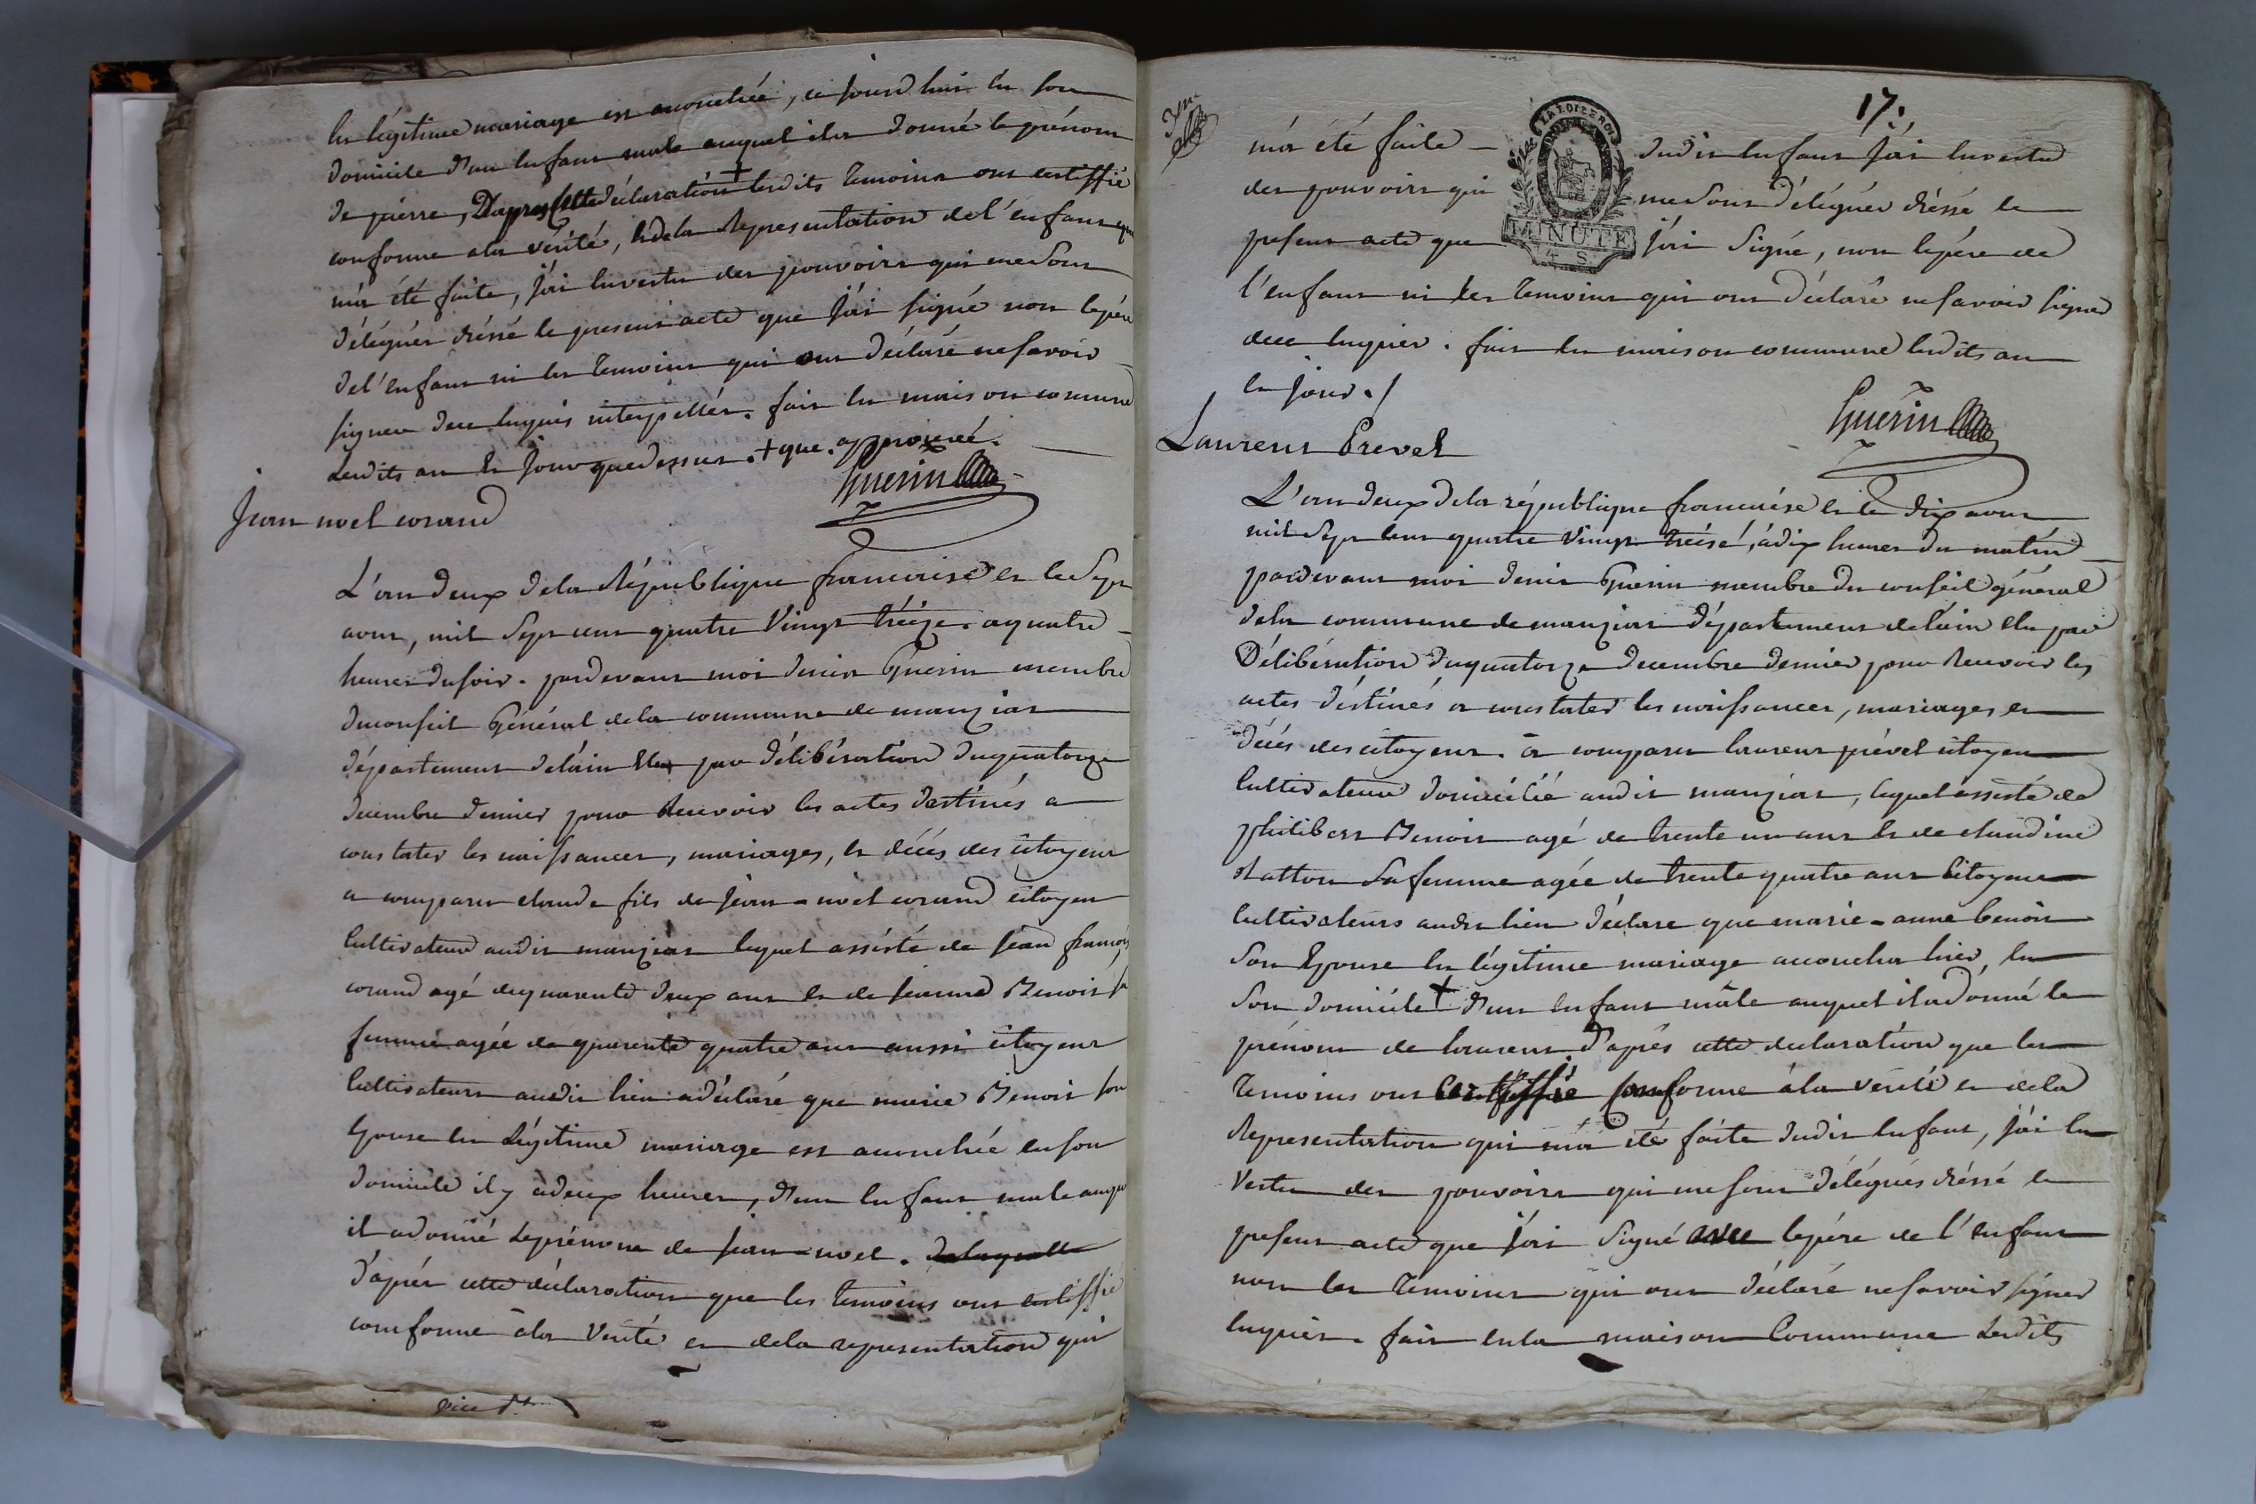 en légitime mariage est accouchée, ce jourd'hui en son
domicile d'un enfant male auquel il a donné le prénom
de pierre, D'apres Cette déclaration + lesdits temoins ont certiffié
conforme a la vérité, et de la Representation de l'enfant qui
m'a été faite, j'ai en vertu des pouvoirs qui me sont
délégués dréssé le present acte que j'ai signé non le père
de l'enfant ni les temoins qui ont déclaré ne savoir
signer de ce enquis interpellés. fait en maison commune
lesdits an et jour que dessus. + que. approuvé.
Guerin
Jean noel corand
L'an deux de la République francaise et le Sept
aout, mil Sept cent quatre Vingt tréize. a quatre
heures du soir. pardevant moi denis Guerin membre
du conseil Général de la commune de manziat
département de l'ain Elu par délibération du quatorze
decembre dernier pour Recevoir les actes destinés a
constater les naissances, mariages, et décés des citoyens
a comparu claude fils de Jean-noel corand citoyen
Cultivateur audit manziat lequel assisté de Jean françois
corand agé de quarente deux ans et de jeanne Benoit sa
femme agée de quarente quatre ans aussi citoyens
Cultivateurs audit lieu a déclaré que marie Benoit son
Epouse en Légitime mariage est accouchée en son
domicile il y a deux heures, d'un Enfant male auquel
il a donné Le prénom de Jean-noel. de laquelle
d'aprés cette déclaration que les temoins ont certiffié
comforme a la Verité et de la representation qui
17.
m'a été faite dudit Enfant j'ai en vertu
des pouvoirs qui me sont délégués dréssé le
present acte que j'ai Signé, non le père de
l'enfant ni les temoins qui ont déclaré ne savoir signer
de ce enquis. fait en maison commune lesdits an
et jour./
LA LOI ET LE ROI
MINUTE
4 S
Guerin
Laurent Prevel
L'an deux de la république francaise et le dix aout
mil Sept cent quatre Vingt treise, à dix heures du matin
pardevant moi denis Guerin membre du conseil général
de la commune de manziat département de l'ain elu par
Délibération du quatorze decembre dernier pour Recevoir les
actes déstinés a constater les naissances, mariages et
décés des citoyens. a comparu laurent prével citoyen
Cultivateur domicilié audit manziat, lequel assisté de
philibert Benoit agé de trente un ans et de claudine
Sa femme agée de trente quatre ans Citoyens
Cultivateurs audit lieu déclare que marie-anne benoit
Son Epouse en légitime mariage accoucha hier, en
Son domicile + d'un enfant mâle auquel il a donné le
prénom de laurent. d'aprés cette declaration que les
temoins ont certiffié conforme à la verité et de la
Representation qui m'a été faite dudit Enfant, j'ai en
Vertu des pouvoirs qui me sont délégués dréssé le
present acte que j'ai Signé avec le père de l'enfant
non les temoins qui ont déclaré ne savoir signer
enquis. fait en la maison Commune Lesdits